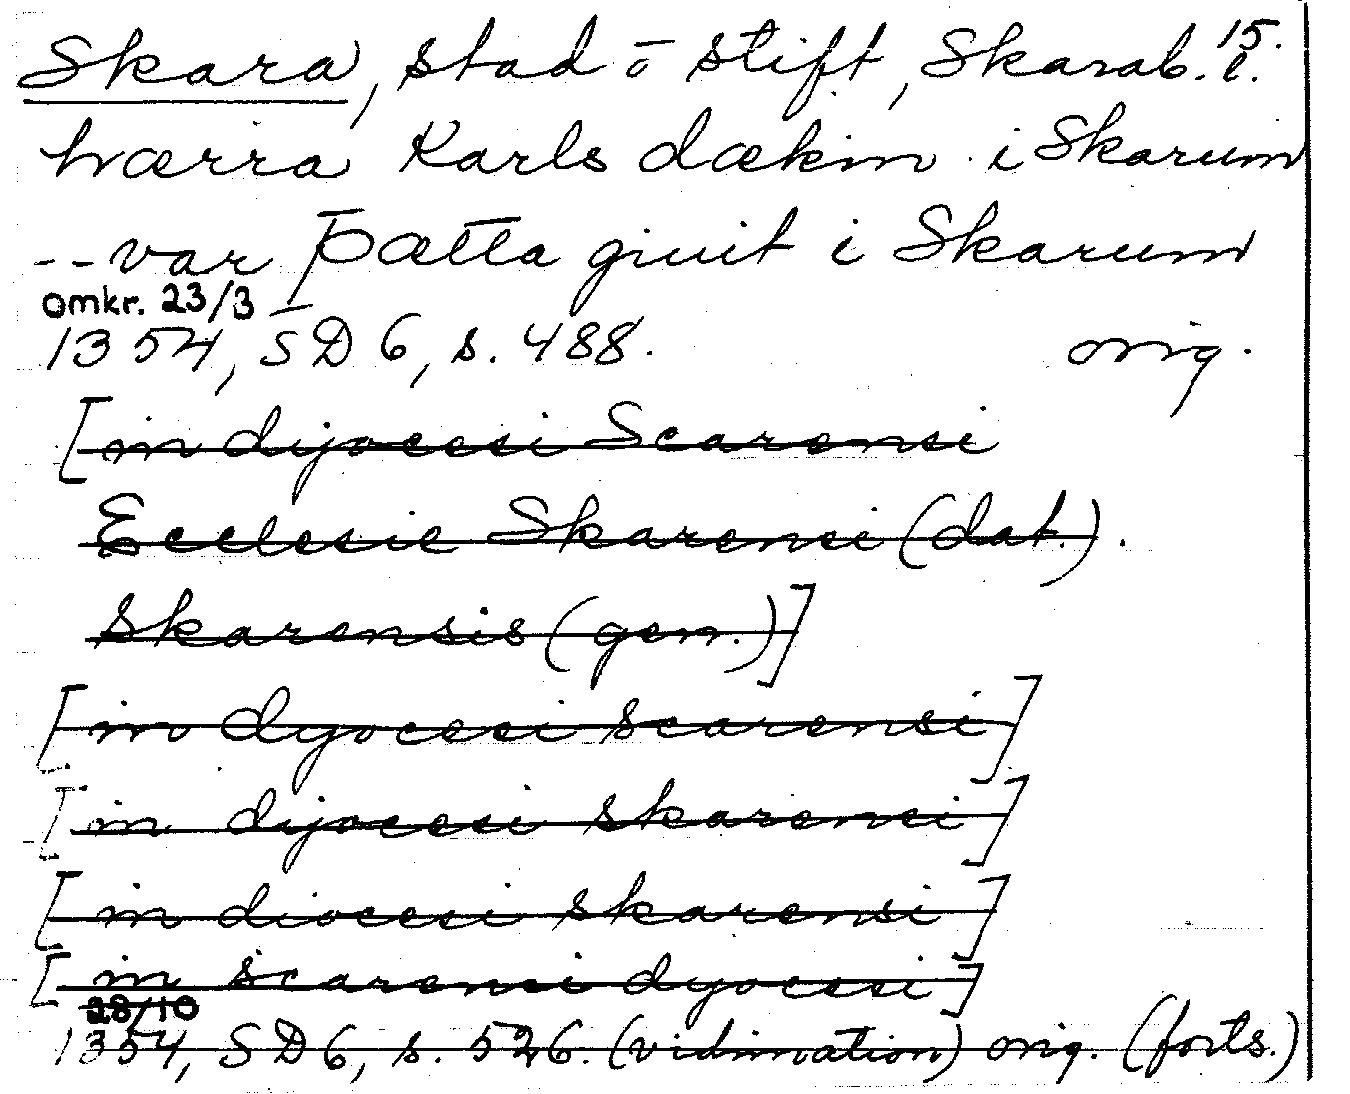 Skara, stad o stift, Skarab. l. 15.
hværra Karls dækin i Skarum
-- var þætta giuit i Skarum
omkr. 23/3
1354, SD 6, s. 488. orig.
[in dyocesi Scarensi
Ecclesie Skarensi (dat.).
Skarensis (gen.)]
[in dyocesi scarensi]
[in dyocesi skarensi]
[in diocesi skarensi]
[in scarensi dyocesi]
28/10
1354, SD 6, s. 526. (vidimation) orig. (forts.)